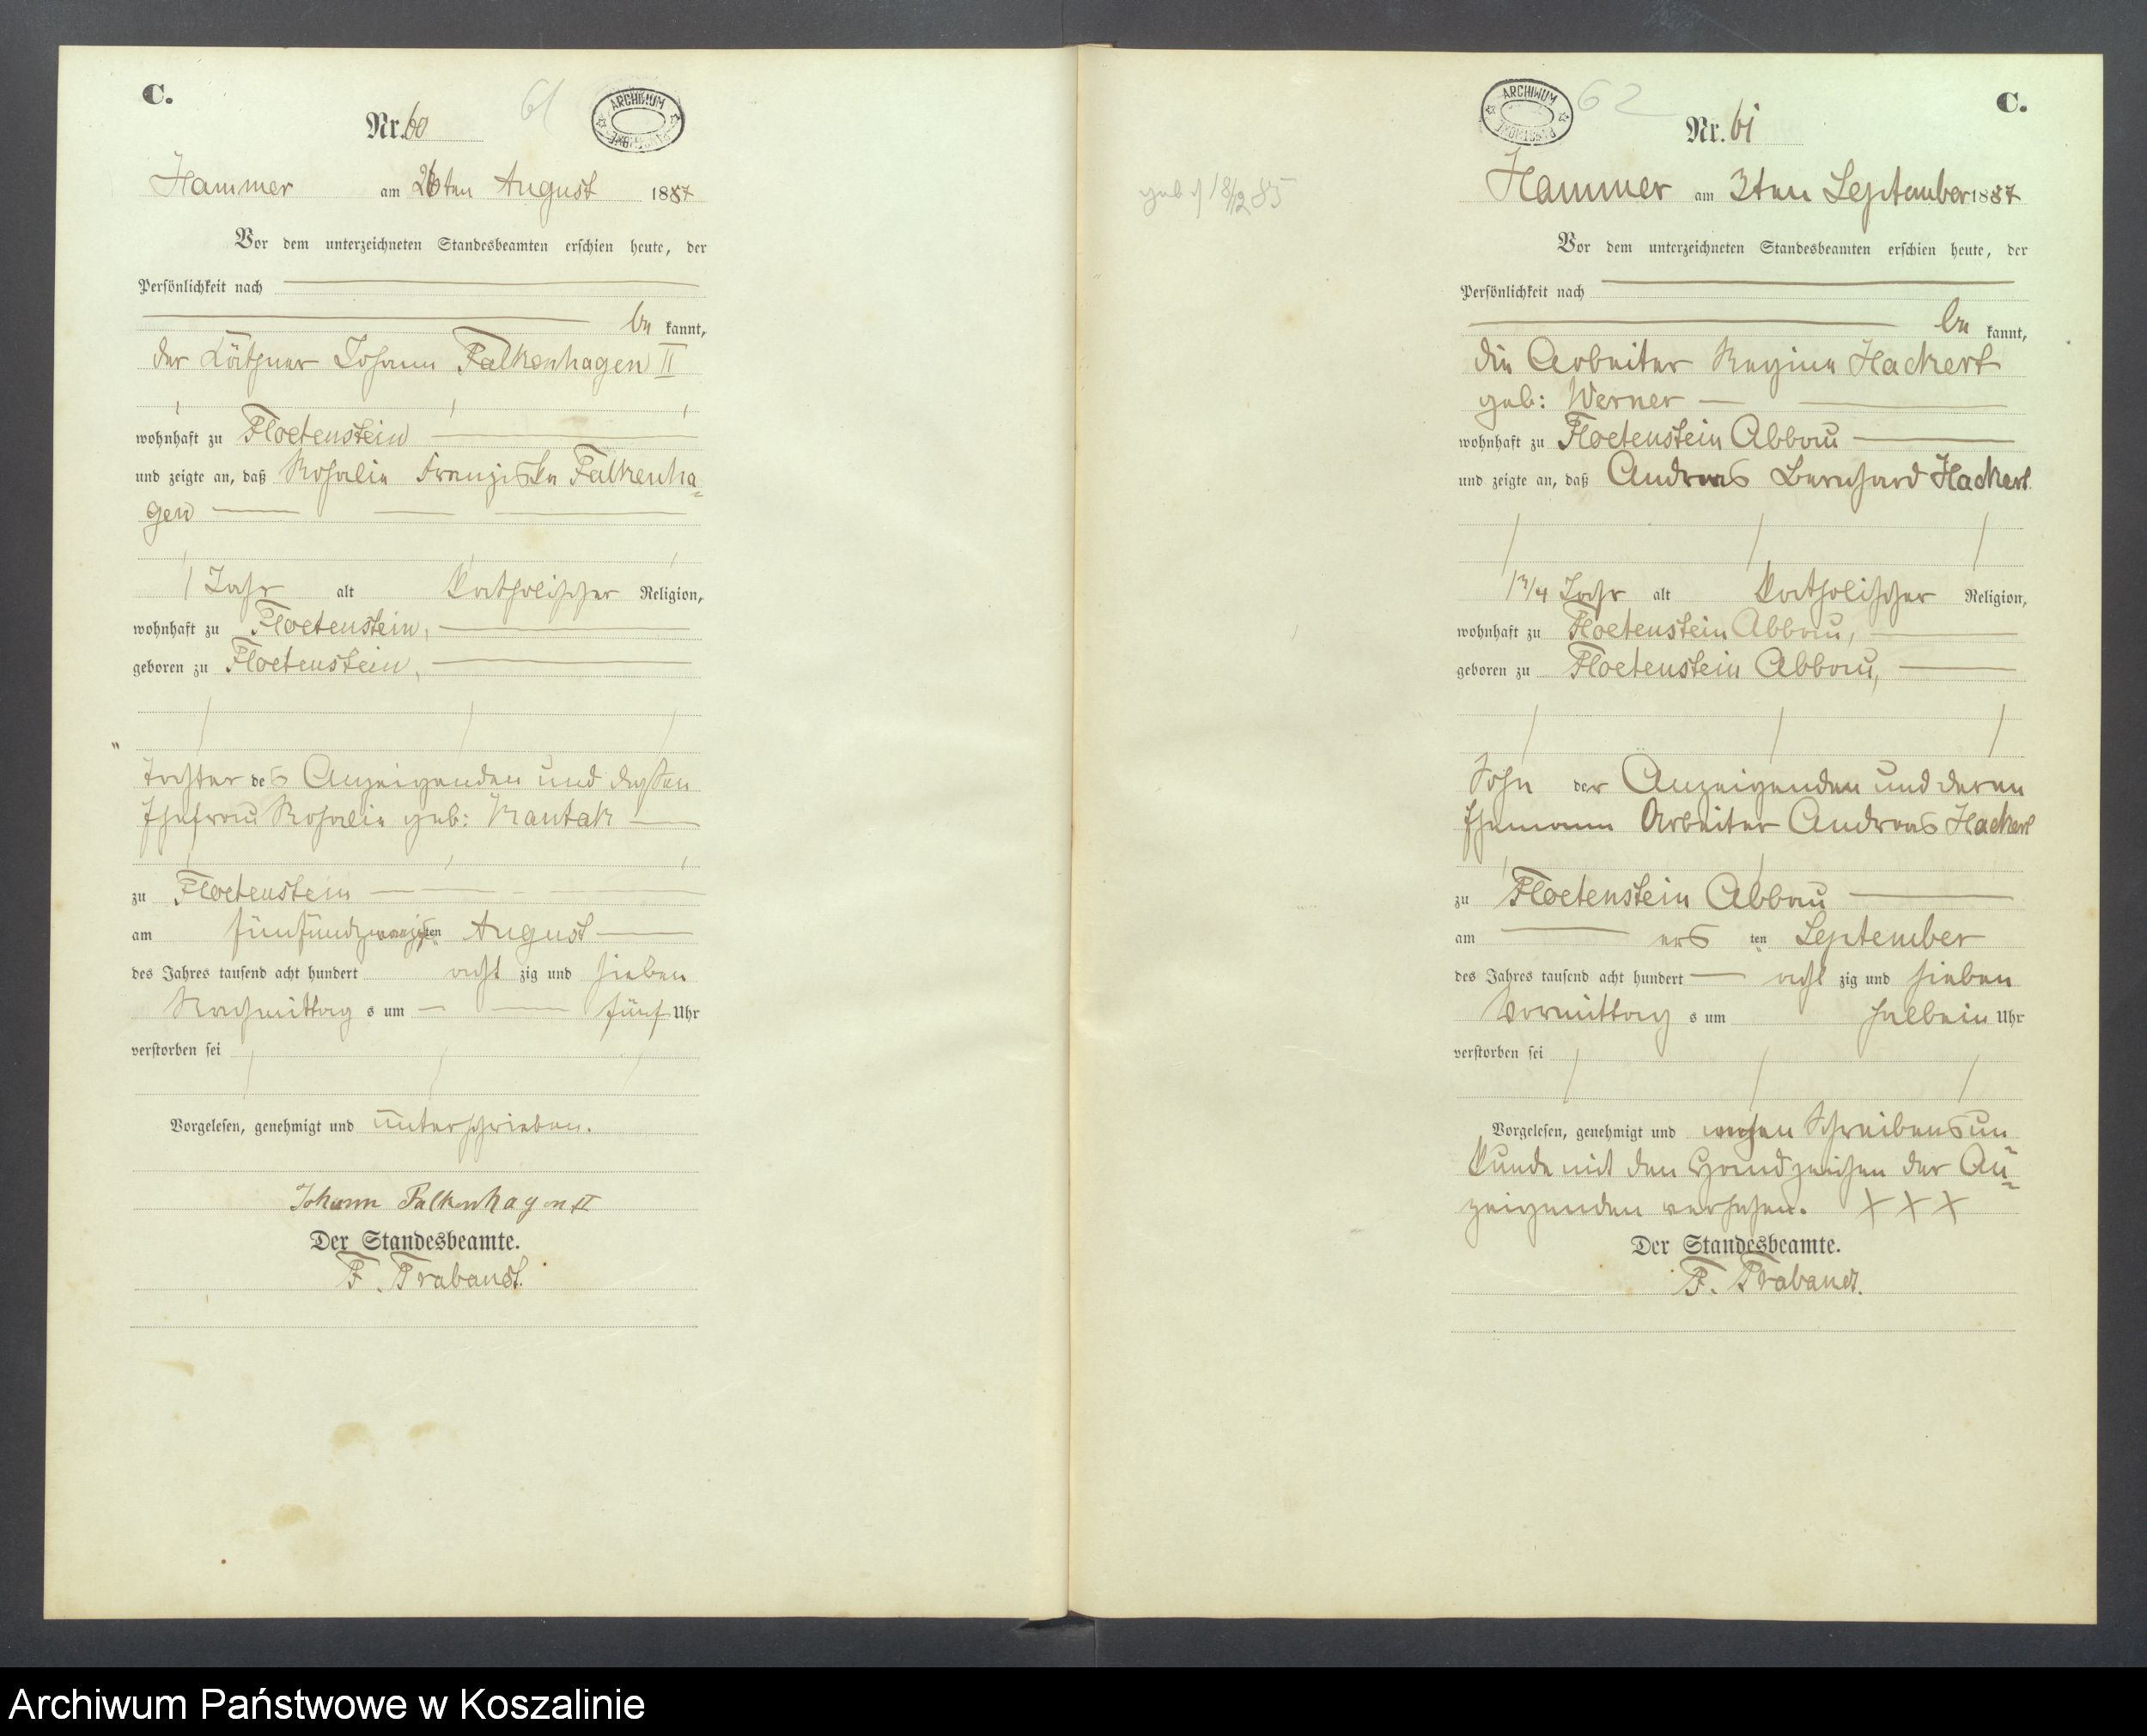 C.
61
ARCHIWUM
Nr. 60
Hammer am 26ten August 1887
Vor dem unterzeichneten Standesbeamten erschien heute, der
Persönlichkeit nach
be kannt,
der Käthner Johann Falkenhagen II
wohnhaft zu Floetenstein
und zeigte an, daß Rosalie Franziska Falkenha=
gen
1 Jahr alt katholischer Religion,
wohnhaft zu Floetenstein,
geboren zu Floetenstein,
Tochter des Anzeigenden und dessen
Ehefrau Rosalie geb: Kantak
zu Floetenstein
am fünfundzwanzigsten August
des Jahres tausend acht hundert acht zig und sieben
Nachmittag s um fünf Uhr
verstorben sei
Vorgelesen, genehmigt und unterschrieben.
Johann Falkenhagen II
Der Standesbeamte.
F. Trabandt.
ARCHIWUM
62
C.
Nr. 61
geb 18/12 85
Hammer am 3ten September 1887
Vor dem unterzeichneten Standesbeamten erschien heute, der
Persönlichkeit nach
be kannt,
die Arbeiter Regine Hackert
geb: Werner
wohnhaft zu Floetenstein Abbau
und zeigte an, daß Andreas Bernhard Hackert.
1 3/4 Jahr alt katholischer Religion,
wohnhaft zu Floetenstein Abbau,
geboren zu Floetenstein Abbau,
Sohn der Anzeigenden und deren
Ehemann Arbeiter Andreas Hackert
zu Floetenstein Abbau
am ers ten September
des Jahres tausend acht hundert acht zig und sieben
Vormittag s um halbein Uhr
verstorben sei
Vorgelesen, genehmigt und wegen Schreibensun=
kunde mit den Handzeichen der An=
zeigenden versehen. X X X
Der Standesbeamte.
F. Trabandt.
Archiwum Państwowe w Koszalinie